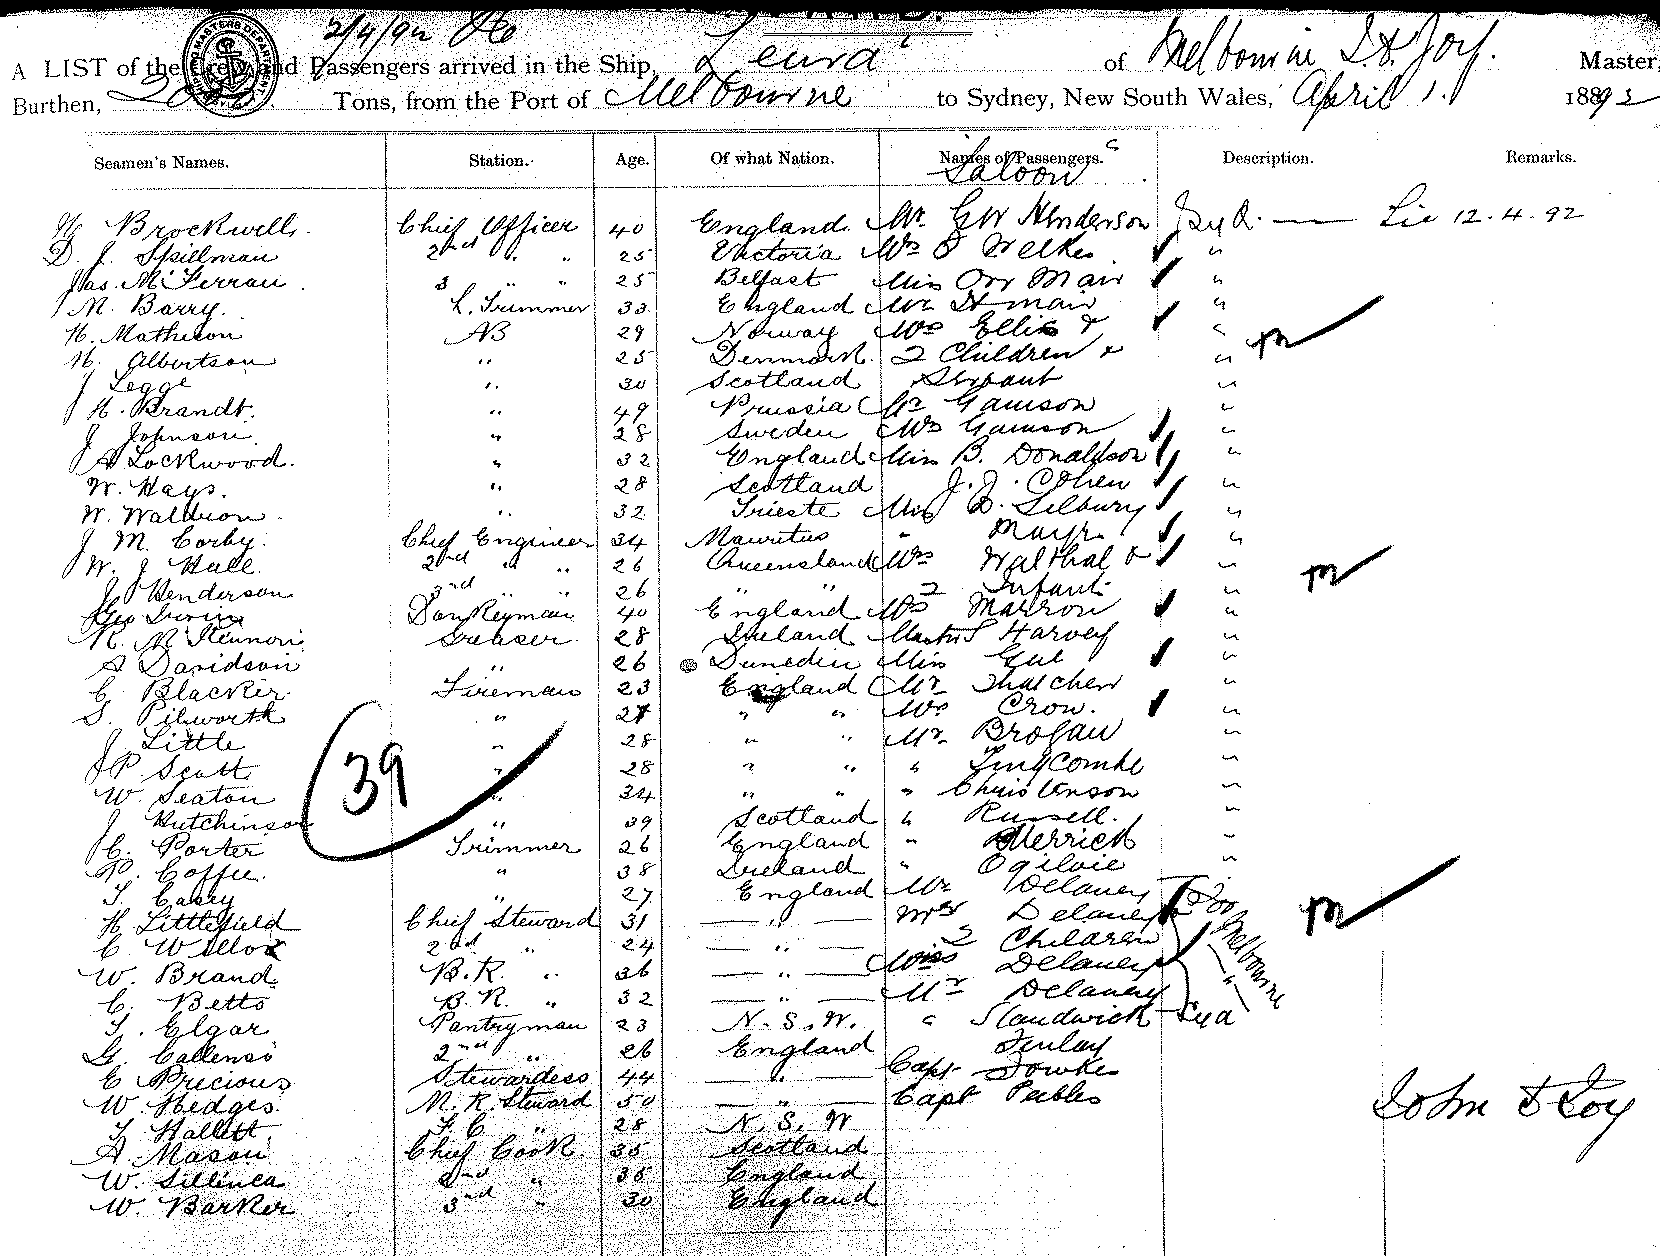 2/4/92
A LIST of the Crew and Passengers arrived in the Ship, Leura of Melbourne Master,
Burthen, Tons, from the Port of Melbourne to Sydney, New South Wales, April 1. 1892
Seamen's Names. Station. Age. Of what Nation. Names of Passengers. Description. Remarks.
Saloon
Brockwell. Chief Officer 40 England. Mr. G W Henderson Syd. — Lie 12.4.92
D. J. Spillman 2nd " " 25 Victoria Mrs Welkes "
Jas. McFerran 3 " " 25 Belfast Miss Orr Mair "
M. Barry. L. Trimmer 33 England Mr. H mair "
H. Mathieson AB 29 Norway Mrs Ellis & "
H. Albertson " 25 Denmark. 2 Children & " m
J Legge " 30 Scotland Servant "
H. Brandt. " 49 Prussia Mr Gamson "
J Johnson. " 28 Sweden Mrs Gamson "
A Lockwood. " 32 England Miss B. Donaldson "
W. Hays. " 28 Scotland J. J. Cohen "
W. Waldron. " 32 Trieste D. Silbury "
J M. Corby. Chief Engineer 34 Mauritius " "
W. J Hall. 2nd " " 26 Queensland Mrs Walthal & "
J Henderson 3rd " " 26 " " 2 Infants " m
Geo Irvine Donkeyman 40 England Mrs Marron "
R. McKennon. Greaser. 28 Ireland Harvey "
A Davidson " 26 Dunedin Miss "
C. Blacker. Fireman 23 England Mr Thatcher "
S. Pilworth " 27 " " Mrs Crow. "
J. Little " 28 " " Mr Brogan "
39
J P. Scott " 28 " " " Lingcombe "
W. Seaton " 34 " " " Christenson "
J Hutchinson " 39 Scotland " Russell. "
C. Porter Trimmer 26 England " Merrick "
P. Coffee. " 38 Ireland " Ogilvie "
T. Casey " 27 England Mr Delaney For Melbourne
H. Littlefield Chief Steward 31 — " — Mrs Delaney & m
C Willox 2nd " 24 — " — 2 Children
W. Brand B.R. " 36 — " — Miss Delaney "
C. Betts B.R. " 32 — " — Mr Delaney
T. Elgar Pantryman 23 N.S.W. " Standwick Syd
G. Callenso 2nd " 26 England Finlay
E Precious Stewardess 44 — " — Capt Fowkes
W. Hedges. M. R. Steward 50 — " — Capt Peebles
T Hallett F C " 28 N.S.W
A. Mason Chief Cook 35 Scotland
W. Sillinea 2nd " 35 England
W. Barker 3rd " 30 England